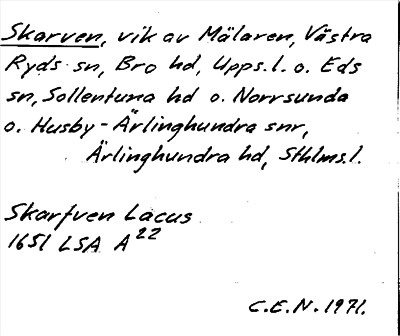 Skarven, vik av Mälaren, Västra
Ryds sn, Bro hd, Upps.l. o. Eds
sn, Sollentuna hd o. Norrsunda
o. Husby-Ärlinghundra snr,
Ärlinghundra hd, Sthlms.l.
Skarfven Lacus
1651 LSA A22
C.E.N. 1971.